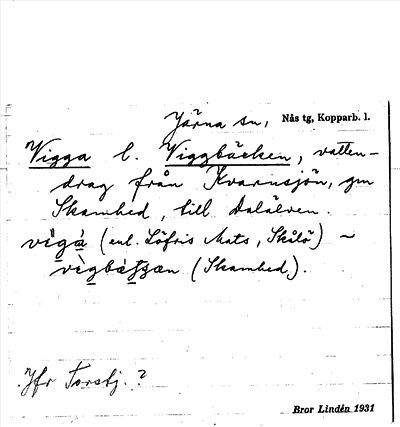 Järna sn, Nås tg, Kopparb. l.
Vigga l. Viggbäcken, vatten-
drag från Kvarnsjön, gm
Skamhed, till Dalälven.
(enl. Löfris Mats, Skålö) ~
(Skamhed).
Jfr Torsbj. ?
Bror Lindén 1931